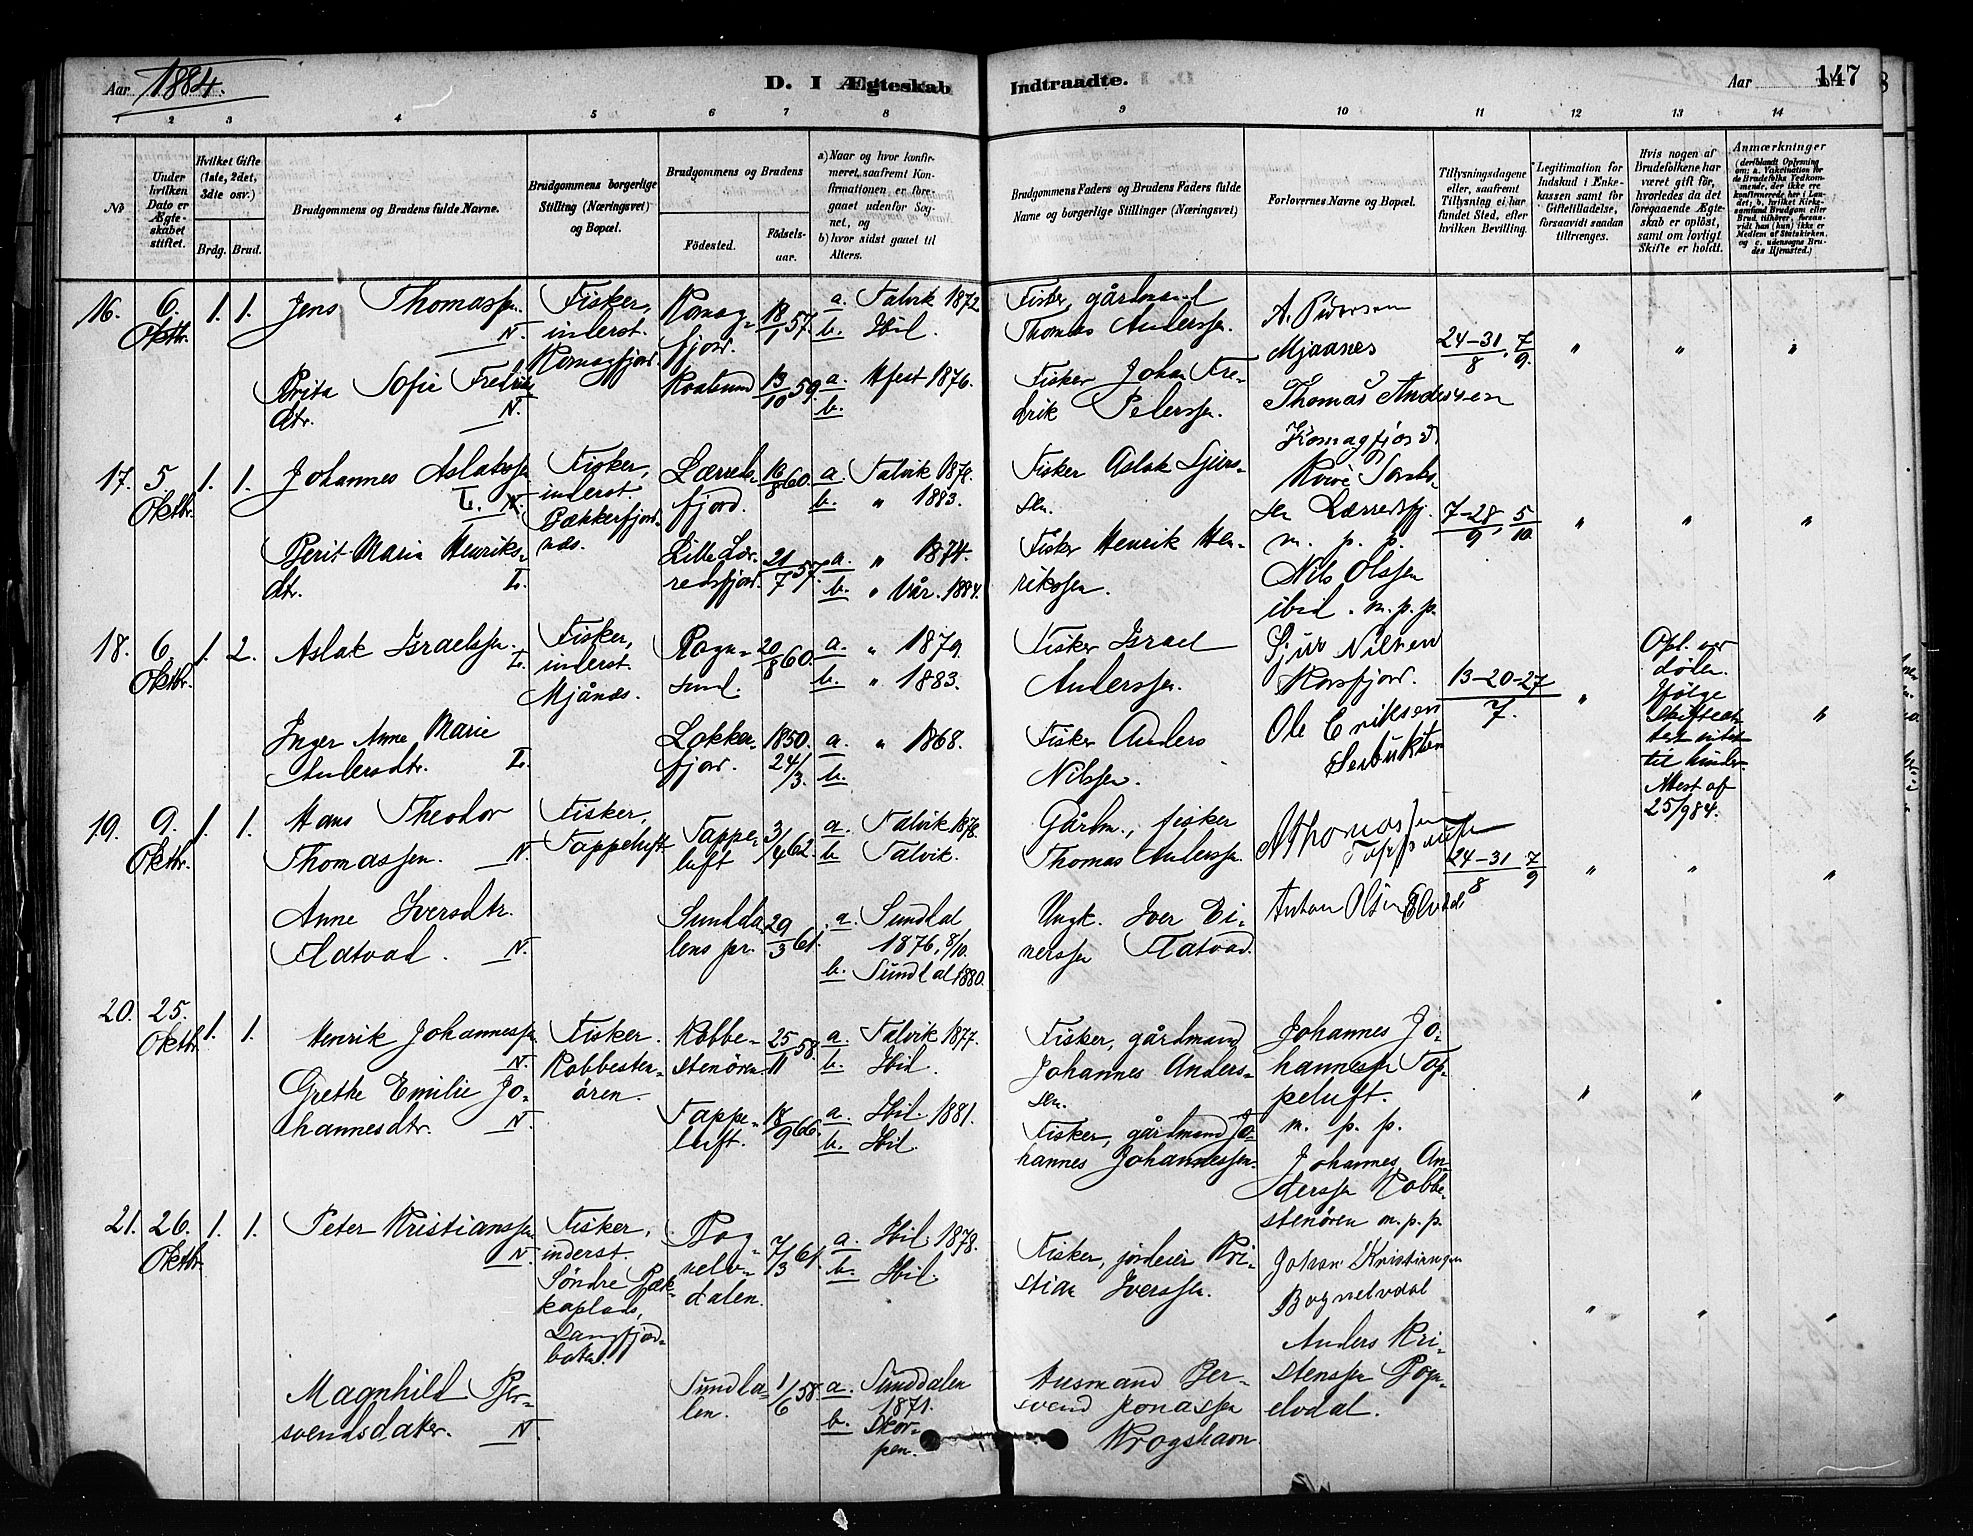 Aar 1884.
D. I Ægteskab
Indtraadte.
Aar
147
1 2 3 4 5 6 7 8 9 10 11 12 13 14
No
Under hvilken Dato er Ægteskabet stiftet.
Hvilket Gifte (1ste, 2det, 3die osv.)
Brdg. Brud.
Brudgommens og Brudens fulde Navne.
Brudgommens borgerlige Stilling (Næringsvei) og Bopæl.
Brudgommens og Brudens
Födested.
Födselsaar.
a) Naar og hvor konfirmeret, saafremt Konfirmationen er foregaaet udenfor Sognet, og
b) hvor sidst gaaet til Alters.
Brudgommens Faders og Brudens Faders fulde Navne og borgerlige Stillinger (Næringsvei)
Forlovernes Navne og Bopæl.
Tillysningsdagene eller, saafremt Tillysning ei har fundet Sted, efter hvilken Bevilling.
Legitimation for Indskud i Enkekassen samt for Giftetilladelse, forsaavidt saadan tiltrænges.
Hvis nogen af Brudefolkene har været gift för, hvorledes da det foregaaende Ægteskab er oplöst, samt om lovligt Skifte er holdt.
Anmærkninger
16. 6. Oktbr. 1. 1.
Jens Thomassen. N.
Fisker, inderst. Komagfjord
Komagfjord. 18/1 57.
a. Talvik 1872
b. Ibid.
Fisker, gårdmand Thomas Anderssen.
A. Pedersen Mjaanes
24-31/8, 7/9. " " "
Berita Sofie Fredriksdtr. N.
13/10 59.
a. Hfest 1876.
b.
Fisker Johan Fredrik Peterssen.
Thomas Andersen Komagfjord.
17. 5. Oktbr. 1. 1.
Johannes Aslaksen L. N.
Fisker, inderst. Bækkerfjordnæs.
Lerredsfjord. 18/8 60.
a. Talvik 1878.
b. " 1883.
Fisker Aslak Sjurssen.
Lerredsfj. m. p. p.
7-28/9, 5/10 " " "
Berit Maria Henriksdtr. L.
Lille Lerredsfjord. 21/7 57.
a. " 1874.
b. " Vår. 1884.
Fisker Henrik Henriksen.
Nils Olssen ibid. m. p. p.
18. 6. Oktbr. 1. 2.
Aslak Israelssen. L.
Fisker, inderst. Mjånæs.
Rognsund. 20/8 60.
a. " 1879.
b. " 1883.
Fisker Israel Anderssen.
Sjur Nilsen Korsfjord.
13-20-27/7. " "
Inger Anne Marie Andersdtr. L.
Lokkerfjord. 1850. 24/3.
a. " 1868.
b.
Fisker Anders Nilssen.
Ole Eriksen Seibukten
Attest af 25/9 84.
19. 9. Oktbr. 1. 1.
Hans Theodor Thomassen. N.
Fisker, Tappeluft
Tappeluft 3/4 62.
a. Talvik 1878.
b. Talvik.
Gårdm., fisker Thomas Anderssen.
A Thomassen Tappeluft
24-31/8 7/9 " " "
Anne Iversdtr. Flatvad. N.
Sunddalens pr. 29/3 61.
a. Sundtal 1876, 8/10.
b. Sundtal 1880.
Ungk. Iver Einerssen Flatvad.
Anton Olsen Elvedal
20. 25. Oktbr. 1. 1.
Henrik Johannessen N.
Fisker. Kobbestenören.
Kobbestenören. 25/11 58.
a. Talvik 1877.
b. Ibid.
Fisker, gårdmand Johannes Anderssen.
Johannes Johannessen Tappeluft. m. p. p.
" " "
Grethe Emilie Johannesdtr. N.
Tappeluft. 18/9 66.
a. Ibid. 1881.
b. Ibid.
Fisker, gårdmand Johannes Johannessen.
Johannes Anderssen Kobbestenören m. p. p.
21. 26. Oktbr. 1. 1.
Peter Kristianssen N.
Fisker, inderst. Söndre Bækkaplads, Langfjordboten.
Bognelvdalen. 7/3 61.
a. Ibid. 1878.
b. Ibid.
Fisker, jordeier Kristian Iverssen.
Johan Kristiansen Bognelvdal
" " "
Magnhild Bersvendsdater. N.
Sunddalen. 1/6 58.
a. Sunddalen 1871.
b. Skorpen.
Husmand Bersvend Jonassen Krogshavn
Anders Kristenssen Bognelvdal.